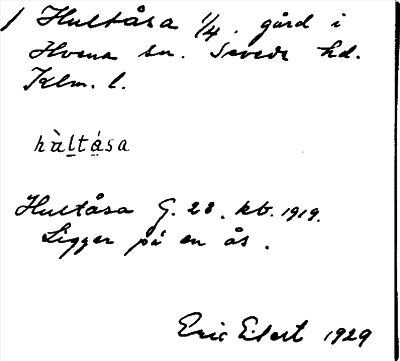 / Hultåsa 1/4. gård i
Hvena sn. Sevede hd.
Klm. l.
hùltåsa
Hultåsa G. 28. kb. 1919.
Ligger på en ås.
Eric Elert 1929